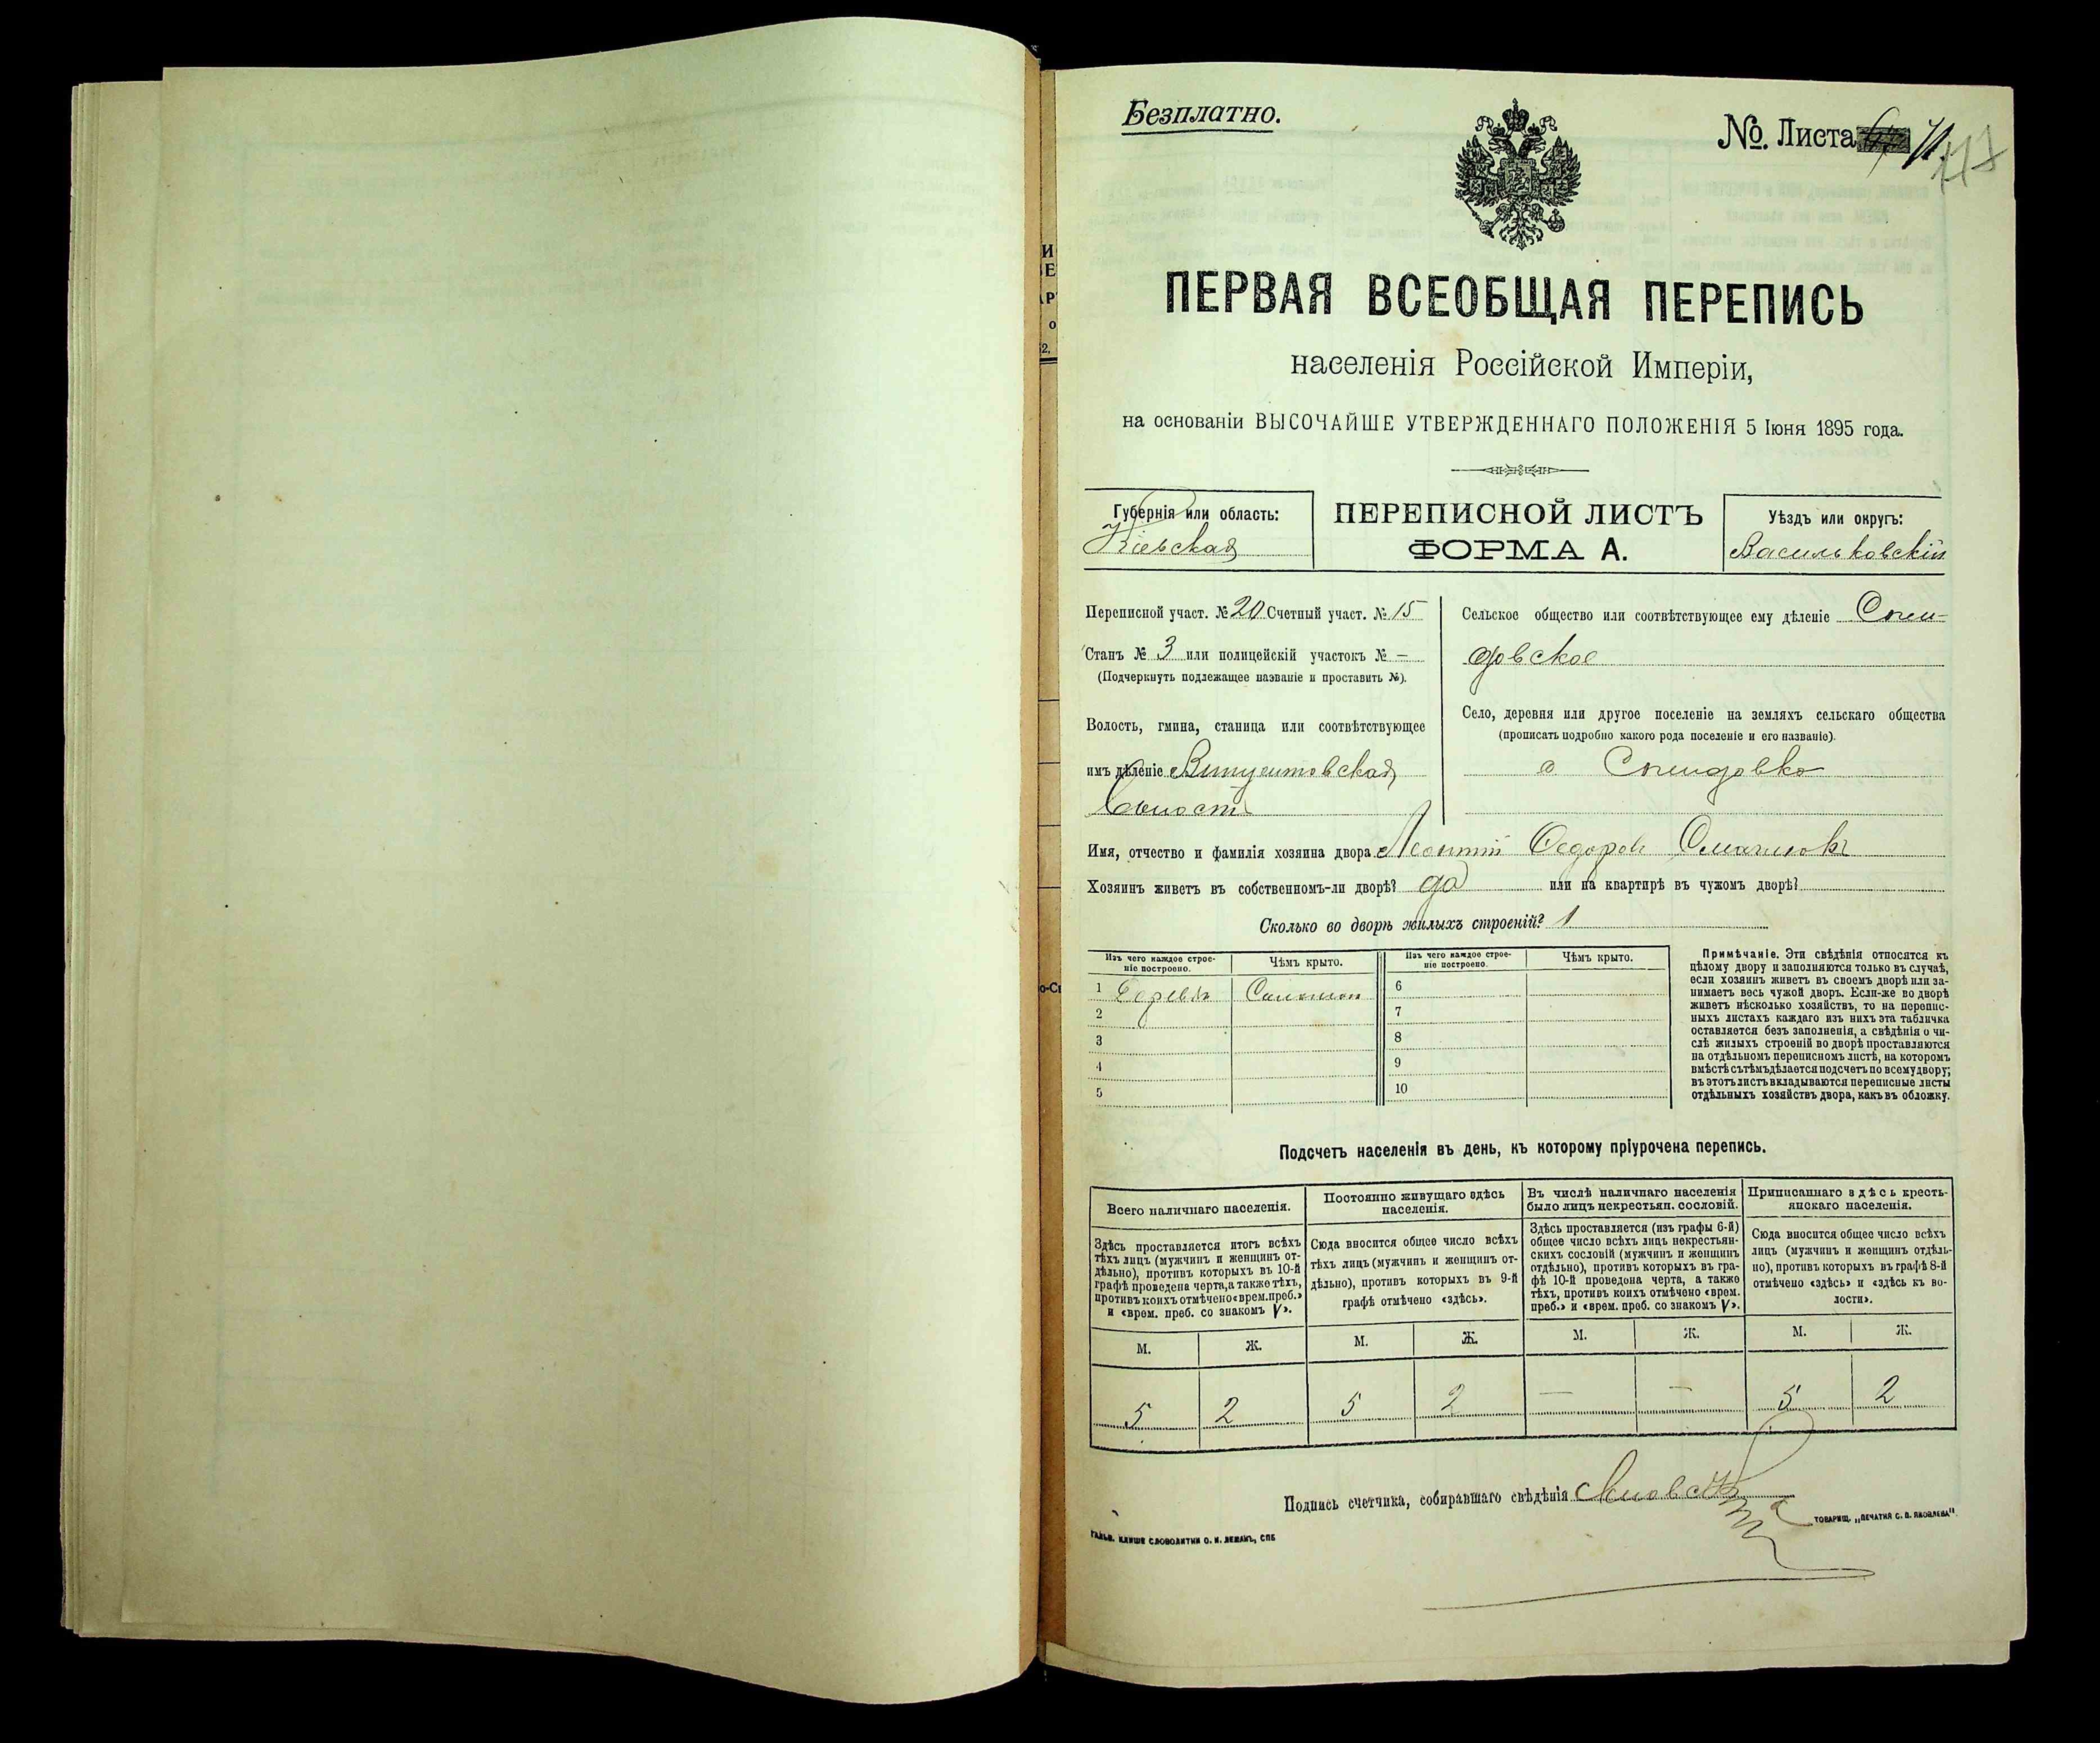 Безплатно.
№. Листа 71.
ПЕРВАЯ ВСЕОБЩАЯ ПЕРЕПИСЬ
населенія Россійской Имперіи,
на основаніи ВЫСОЧАЙШЕ УТВЕРЖДЕННАГО ПОЛОЖЕНІЯ 5 Іюня 1895 года.
Губернія или область:
Кіевская
ПЕРЕПИСНОЙ ЛИСТЪ
ФОРМА А.
Уѣздъ или округъ:
Васильковскій
Переписной участ. № 20 Счетный участ. № 15
Станъ № 3 или полицейскій участокъ № —
(Подчеркнуть подлежащее названіе и проставить №).
Волость, гмина, станица или соотвѣтствующее
имъ дѣленіе Винцентовская
Волость
Сельское общество или соотвѣтствующее ему дѣленіе
довское
Село, деревня или другое поселеніе на земляхъ сельскаго общества
(прописать подробно какого рода поселеніе и его названіе).
Имя, отчество и фамилія хозяина двора Леонтій Федоровъ
Хозяинъ живетъ въ собственномъ-ли дворѣ? да или на квартирѣ въ чужомъ дворѣ?
Сколько во дворѣ жилыхъ строеній? 1
Изъ чего каждое строе-
ніе построено.
Чѣмъ крыто.
Изъ чего каждое строе-
ніе построено.
Чѣмъ крыто.
1 Дерева Соломой
6
2
7
3
8
4
9
5
10
Примѣчаніе. Эти свѣдѣнія относятся къ
цѣлому двору и заполняются только въ случаѣ,
если хозяинъ живетъ въ своемъ дворѣ или за-
нимаетъ весь чужой дворъ. Если-же во дворѣ
живетъ нѣсколько хозяйствъ, то на перепис-
ныхъ листахъ каждаго изъ нихъ эта табличка
оставляется безъ заполненія, а свѣдѣнія о чи-
слѣ жилыхъ строеній во дворѣ проставляются
на отдѣльномъ переписномъ листѣ, на которомъ
вмѣстѣ съ тѣмъ дѣлается подсчетъ по всему двору;
въ этотъ листъ вкладываются переписные листы
отдѣльныхъ хозяйствъ двора, какъ въ обложку.
Подсчетъ населенія въ день, къ которому пріурочена перепись.
Всего наличнаго населенія.
Здѣсь проставляется итогъ всѣхъ
тѣхъ лицъ (мужчинъ и женщинъ от-
дѣльно), противъ которыхъ въ 10-й
графѣ проведена черта, а также тѣхъ,
противъ коихъ отмѣчено «врем. преб.»
и «врем. преб. со знакомъ V».
Постоянно живущаго здѣсь
населенія.
Сюда вносится общее число всѣхъ
тѣхъ лицъ (мужчинъ и женщинъ от-
дѣльно), противъ которыхъ въ 9-й
графѣ отмѣчено «здѣсь».
Въ числѣ наличнаго населенія
было лицъ некрестьян. сословій.
Здѣсь проставляется (изъ графы 6-й)
общее число всѣхъ лицъ некрестьян-
скихъ сословій (мужчинъ и женщинъ
отдѣльно), противъ которыхъ въ гра-
фѣ 10-й проведена черта, а также
тѣхъ, противъ коихъ отмѣчено «врем.
преб.» и «врем. преб. со знакомъ V».
Приписаннаго здѣсь кресть-
янскаго населенія.
Сюда вносится общее число всѣхъ
лицъ (мужчинъ и женщинъ отдѣль-
но), противъ которыхъ въ графѣ 8-й
отмѣчено «здѣсь» и «здѣсь къ во-
лости».
М. Ж. М. Ж. М. Ж. М. Ж.
5 2 5 2 — — 5 2
Подпись счетчика, собиравшаго свѣдѣнія
ГАЛЬВ. КЛИШЕ СЛОВОЛИТНИ О. И. ЛЕМАНЪ, СПБ
ТОВАРИЩ. „ПЕЧАТНЯ С. П. ЯКОВЛЕВА".